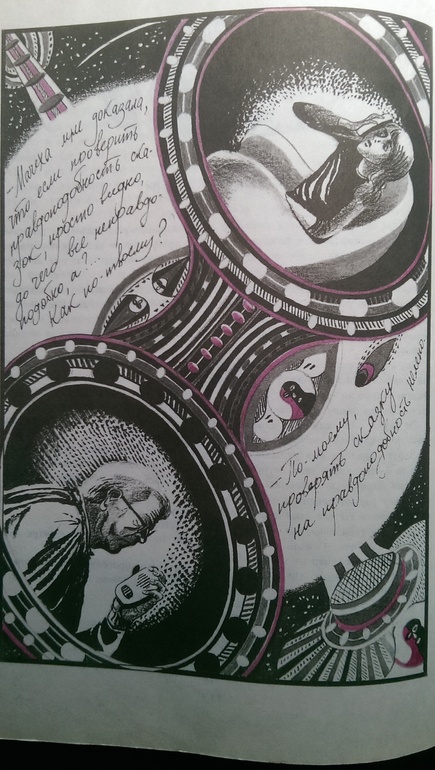 - Мачеха мне доказала,
что если проверить
правдоподобность ска-
зок, просто видно,
до чего все неправдо-
подобно, а?...
Как по-твоему?
- По-моему,
проверять сказку
на правдоподобность нелепо.